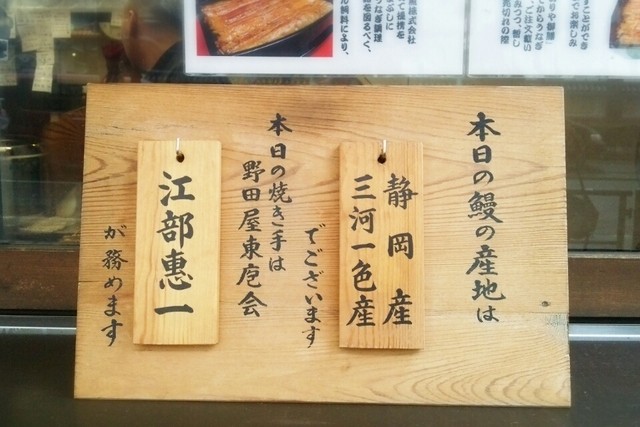 本日の鰻の産地は
静岡産
三河一色産
でございます
本日の焼き手は
野田屋東庖会
江部惠一
が務めます